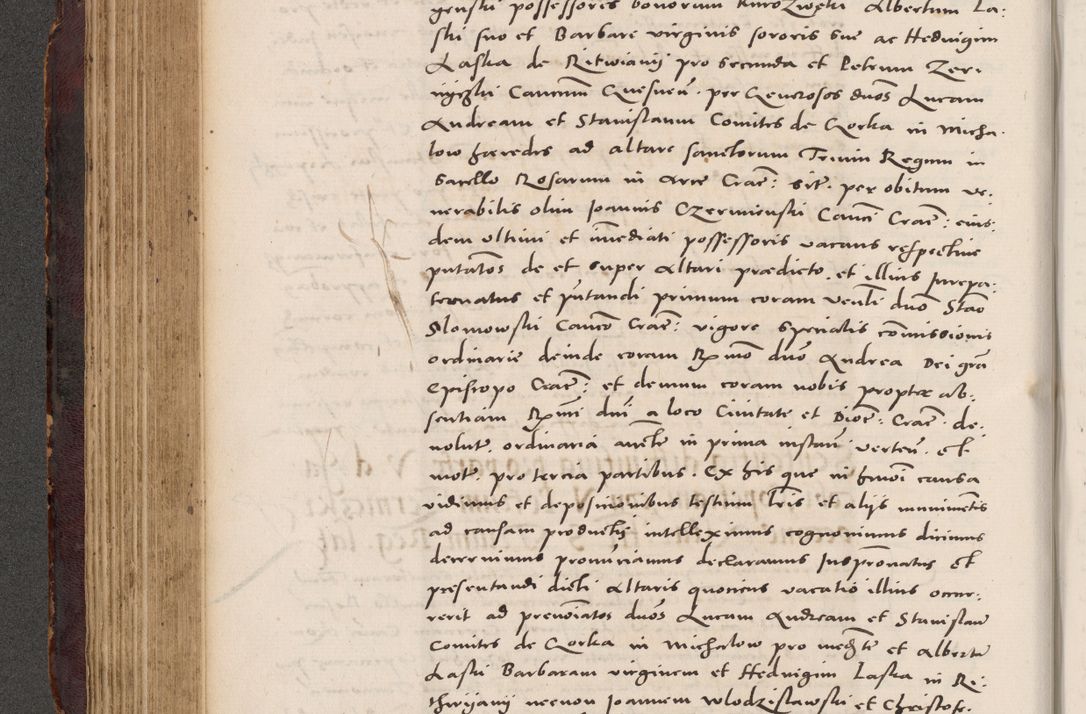 genski possessores bonorum Kurozwęki Albertum La-
ski suo et Barbare virginis sororis sue ac Hedvigim
Laska de Ritwianij pro secunda et Petrum Zer-
nyczki Canonicum per Generosos duos Lucam
Andream et Stanislaum Comites de Gorka in Micha-
low hæredes ad altare sanctorum Trium Regum in
Sacello Rosarum in Arce Crac: site per obitum ve-
nerabilis olim Joannis Czermienski Canci Crac: eius-
dem ultimi et imediati possessoris vacans respective
putatos de et super Altari prædicto et illius Jurepa-
tronatus et pñtandi primum coram Venli dno Stao
Slomowski Canco Crac: vigore specialis comissionis
ordinarie deinde coram Rmo dno Andrea Dei gra
Episcopo Crac: et demum coram nobis propter ab-
sentiam Rmi dni a loco Civitate et Dioc: Crac: de-
volut. ordinaria aucte in prima instan verten. et
mot. pro tercia partibus. Ex his que in hmoi causa
vidimus et depositionibus testium lris et alijs munimetis
ad causam productis intelleximus cognovimus dicimus
decrevimus pronuciamus declaramus Juspronatus et
presentandi dicti Altaris quociens vacatio illius occur-
rerit ad prenoiatos duos Lucam Andream et Stanislau
Comites de Gorka in Michalow pro med te et Albertu
Laski Barbaram virginem et Hedvigim Laska in Ri-
thwijanij necnon Joannem Wlodzislawski et Christofe-